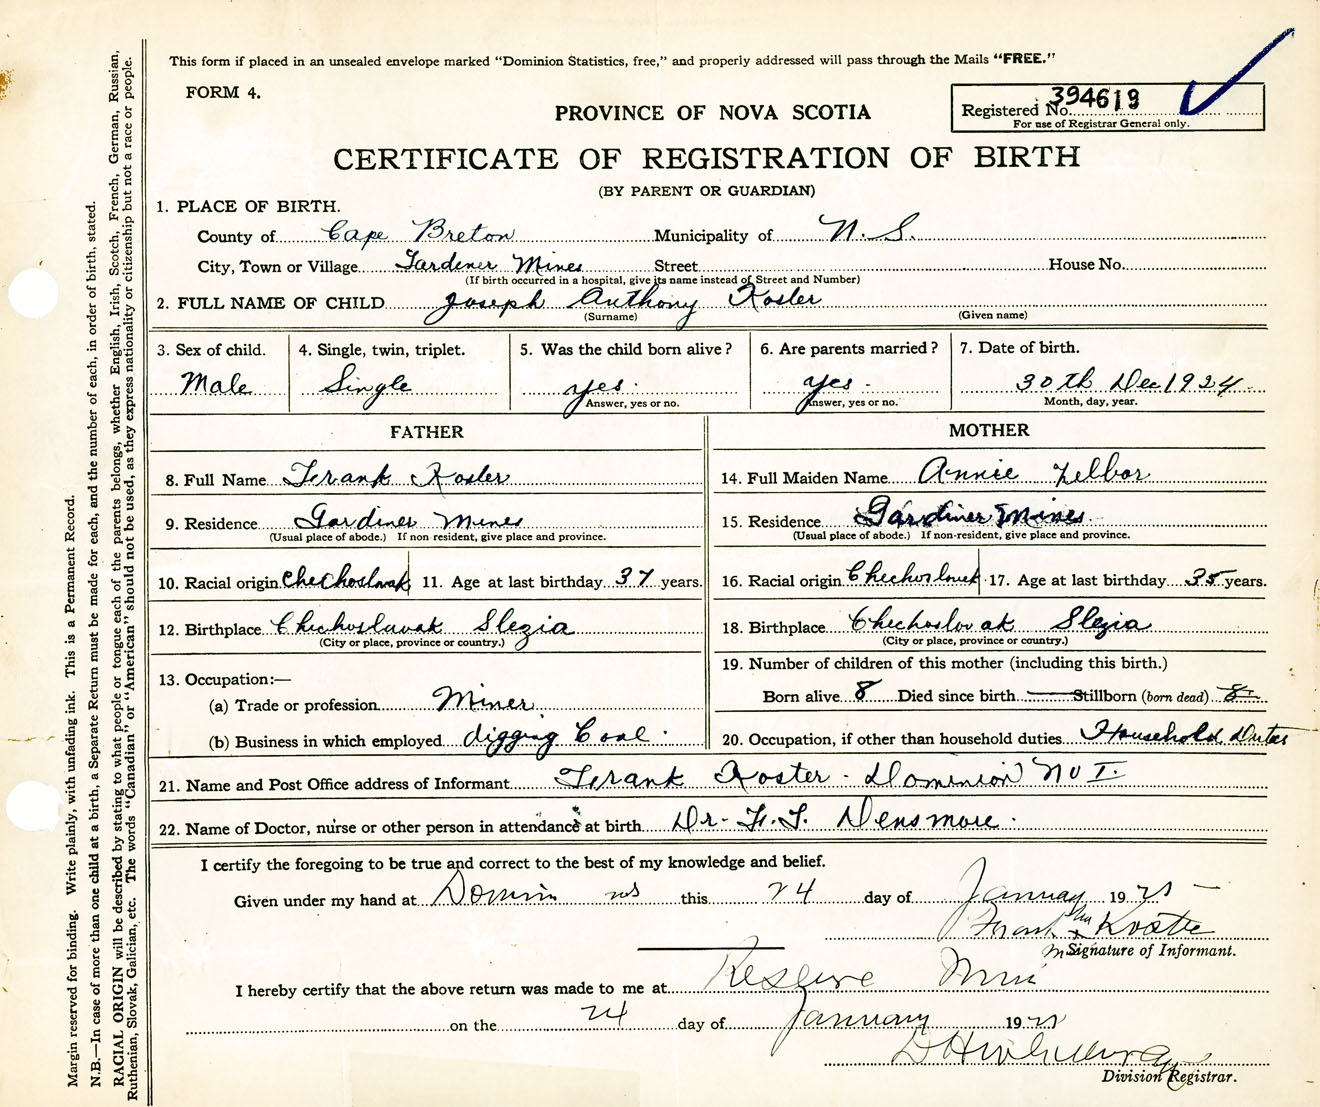 This form if placed in an unsealed envelope marked “Dominion Statistics, free,” and properly addressed will pass through the Mails “FREE.”
FORM 4.
PROVINCE OF NOVA SCOTIA
Registered No. 394619
For use of Registrar General only.
CERTIFICATE OF REGISTRATION OF BIRTH
(BY PARENT OR GUARDIAN)
1. PLACE OF BIRTH.
County of Cape Breton Municipality of N. S.
City, Town or Village Gardener Mines Street House No.
(If birth occurred in a hospital, give its name instead of Street and Number)
2. FULL NAME OF CHILD Joseph Anthony Koster
(Surname) (Given name)
3. Sex of child. 4. Single, twin, triplet. 5. Was the child born alive? 6. Are parents married? 7. Date of birth.
Male Single yes. yes. 30th Dec 1924
Answer, yes or no. Answer, yes or no. Month, day, year.
FATHER MOTHER
8. Full Name Frank Koster 14. Full Maiden Name Annie
9. Residence Gardiner Mines 15. Residence Gardiner Mines
(Usual place of abode.) If non-resident, give place and province. (Usual place of abode.) If non-resident, give place and province.
10. Racial origin Chechoslovak 11. Age at last birthday 37 years. 16. Racial origin Chechoslovak 17. Age at last birthday 35 years.
12. Birthplace Chechoslavak Slezia 18. Birthplace Chechoslovak Slezia
(City or place, province or country.) (City or place, province or country.)
19. Number of children of this mother (including this birth.)
13. Occupation:—
(a) Trade or profession Miner Born alive 8 Died since birth — Stillborn (born dead) 8
(b) Business in which employed digging Coal. 20. Occupation, if other than household duties Household Duties
21. Name and Post Office address of Informant Frank Koster - Dominion No 1.
22. Name of Doctor, nurse or other person in attendance at birth Dr. F. T. Densmore.
I certify the foregoing to be true and correct to the best of my knowledge and belief.
Given under my hand at Dominion NS this 24 day of January 1925
Frank his x Koster
Signature of Informant.
I hereby certify that the above return was made to me at Reserve Mines
on the 24 day of January 1925
Division Registrar.
Margin reserved for binding. Write plainly, with unfading ink. This is a Permanent Record.
N.B.—In case of more than one child at a birth, a Separate Return must be made for each, and the number of each, in order of birth, stated.
RACIAL ORIGIN will be described by stating to what people or tongue each of the parents belongs, whether English, Irish, Scotch, French, German, Russian,
Ruthenian, Slovak, Galician, etc. The words “Canadian” or “American” should not be used, as they express nationality or citizenship but not a race or people.